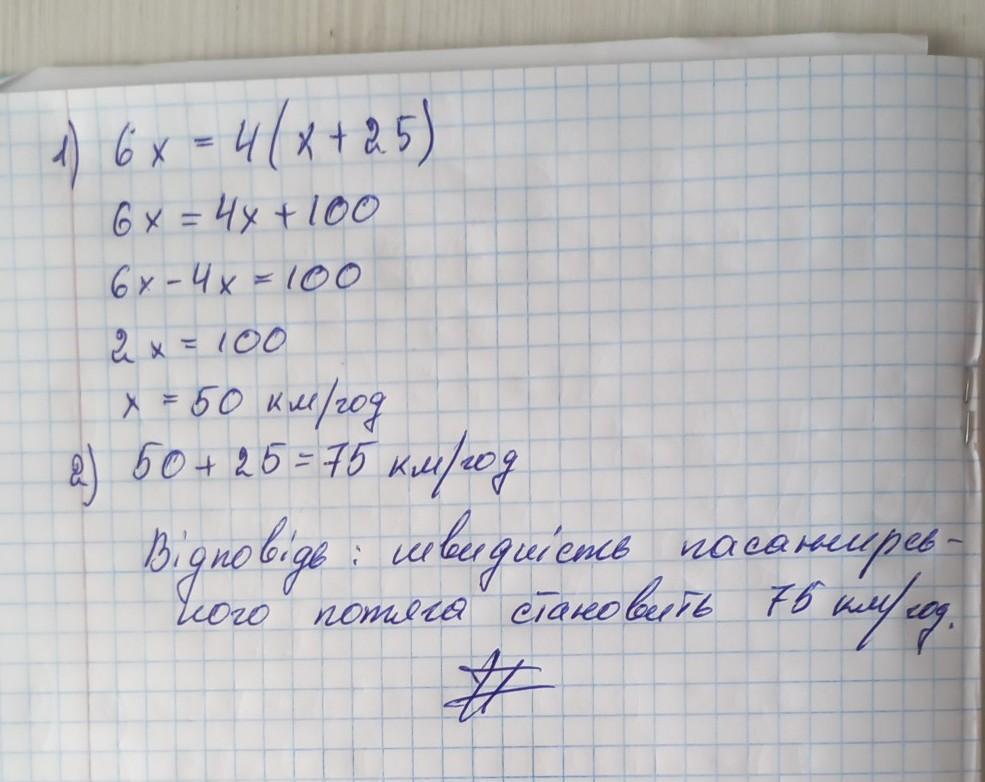 1) 6x = 4(x + 25)
6x = 4x + 100
6x - 4x = 100
2x = 100
x = 50 км/год
2) 50 + 25 = 75 км/год
Відповідь: швидкість пасажирсь-
кого потяга становить 75 км/год.